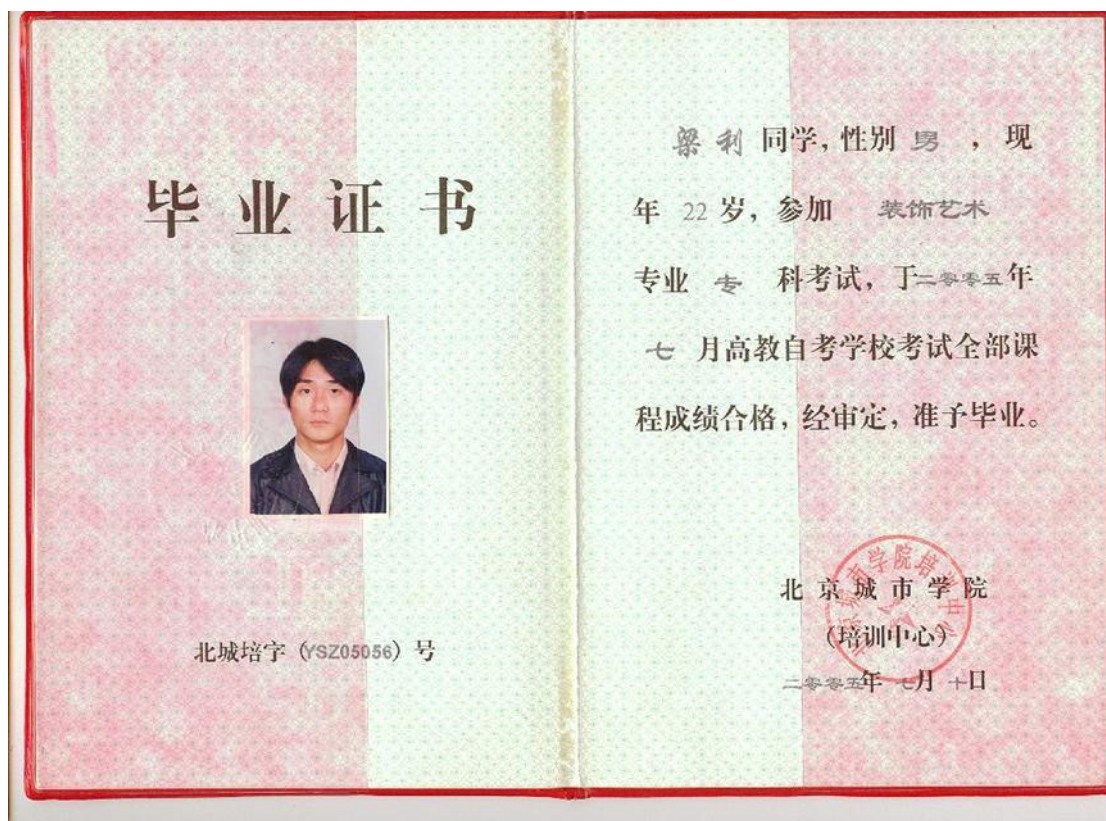 毕业证书
北城培字(YSZ05056)号
梁利同学,性别 男 ,现
年 22 岁,参加 装饰艺术
专业 专 科考试,于二零零五年
七 月高教自考学校考试全部课
程成绩合格,经审定,准予毕业。
北京城市学院培训中心
北京城市学院
(培训中心)
二零零五年 七月 十日